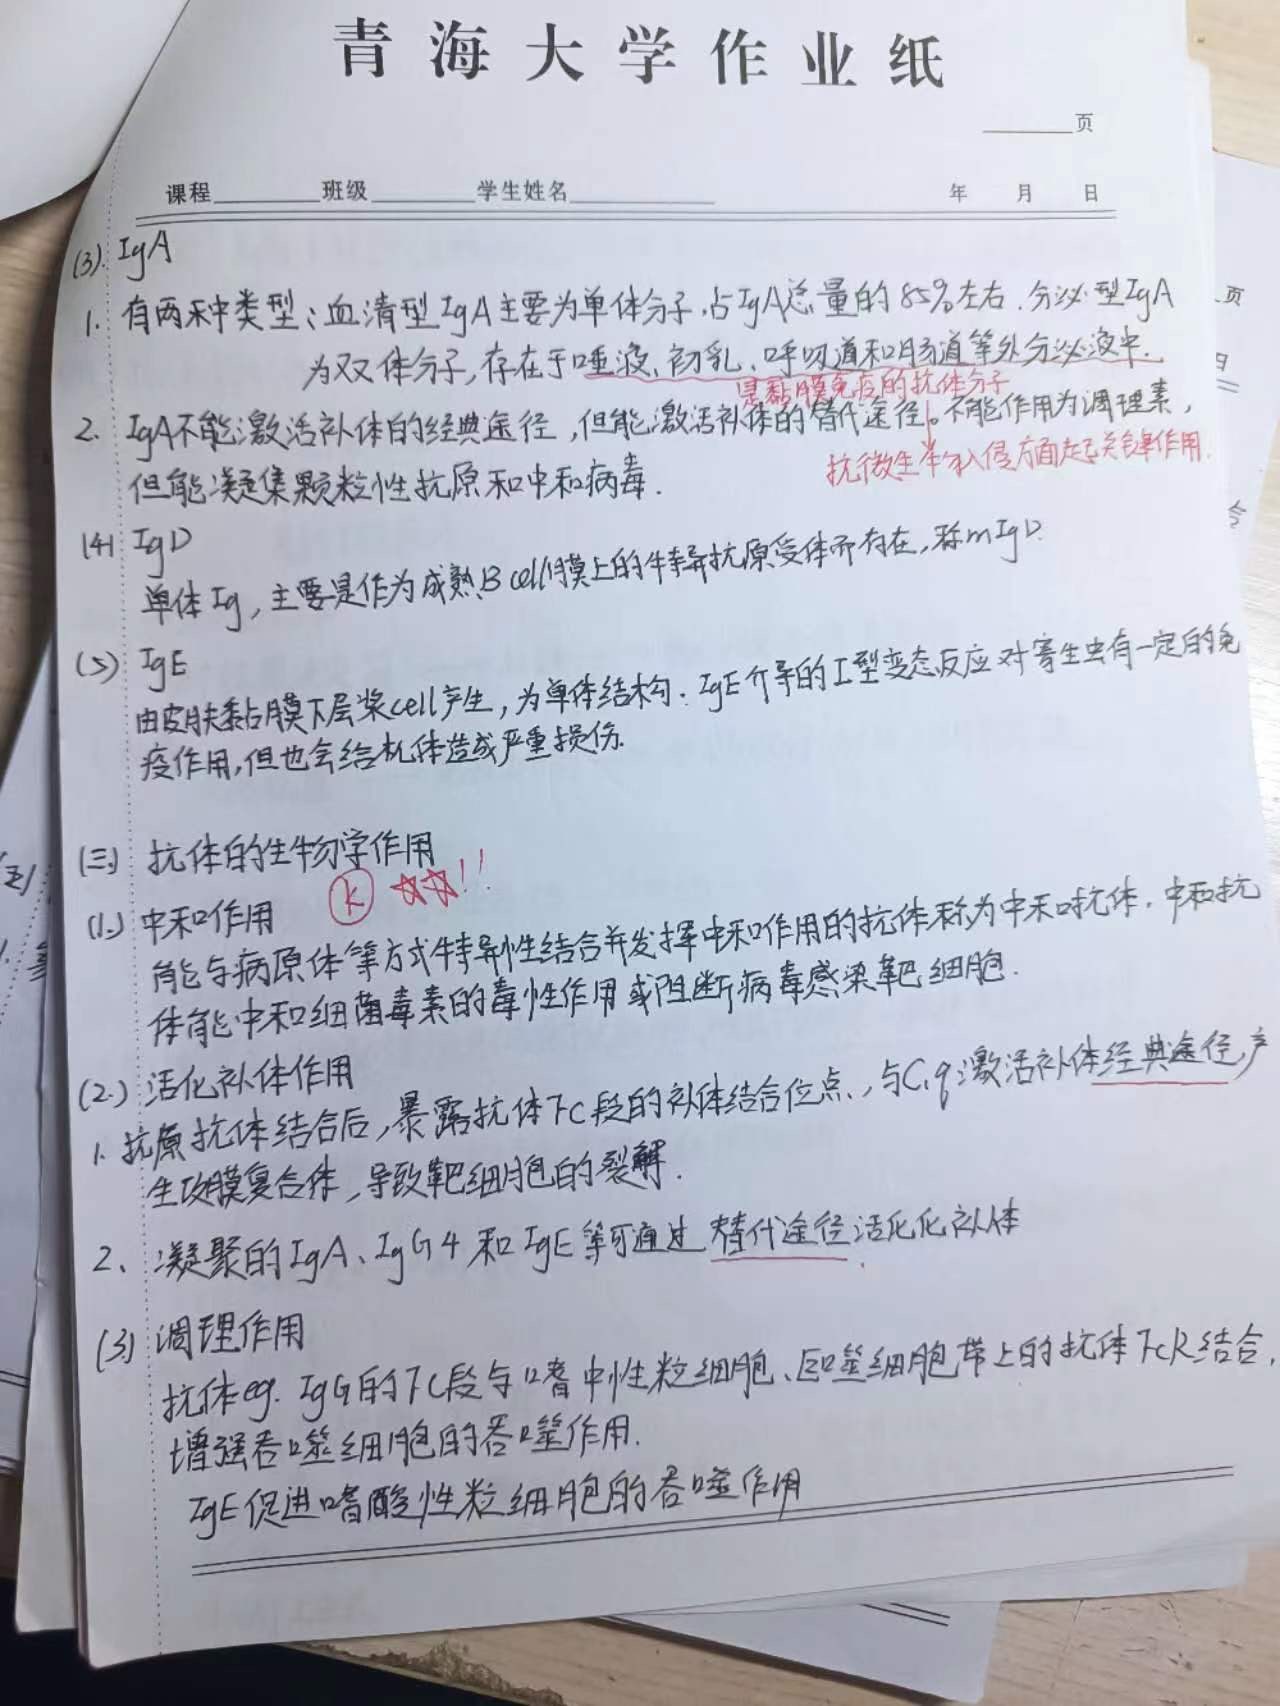 青海大学作业纸
页
课程 班级 学生姓名 年 月 日
(3). IgA
1. 有两种类型：血清型IgA主要为单体分子，占IgA总量的85%左右．分泌型IgA
为双体分子，存在于唾液、初乳、呼吸道和肠道等外分泌液中．
是黏膜免疫的抗体分子
2. IgA不能激活补体的经典途径，但能激活补体的替代途径。不能作用为调理素，
抗微生物入侵方面起关键作用．
但能凝集颗粒性抗原和中和病毒．
(4) IgD
单体Ig，主要是作为成熟B cell膜上的特异抗原受体而存在，称mIgD．
(5) IgE
由皮肤黏膜下层浆cell产生，为单体结构．IgE介导的I型变态反应对寄生虫有一定的免
疫作用，但也会给机体造成严重损伤．
(三) 抗体的生物学作用
(1.) 中和作用 K ☆☆!!
能与病原体等方式特异性结合并发挥中和作用的抗体称为中和抗体．中和抗
体能中和细菌毒素的毒性作用或阻断病毒感染靶细胞．
(2.) 活化补体作用
1. 抗原抗体结合后，暴露抗体Fc段的补体结合位点、，与C1q激活补体经典途径，产
生攻膜复合体，导致靶细胞的裂解．
2、凝聚的IgA、IgG4和IgE等可通过替代途径活化化补体
(3) 调理作用
抗体eg. IgG的FC段与嗜中性粒细胞、巨噬细胞带上的抗体FcR结合，
增强吞噬细胞的吞噬作用．
IgE促进嗜酸性粒细胞的吞噬作用
页
日